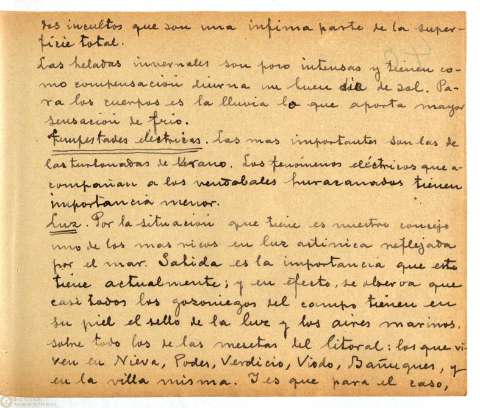 des incultos que son una ínfima parte de la super-
ficie total.
Las heladas invernales son poco intensas y tienen co-
mo compensación diurna un buen día de sol. Pa-
ra los cuerpos es la lluvia lo que aporta mayor
sensación de frío.
Tempestades eléctricas. Las mas importantes son las de
las turbonadas de Verano. Los fenómenos eléctricos que a-
compañan a los vendabales huracanados tienen
importancia menor.
Luz. Por la situación que tiene es nuestro concejo
uno de los mas ricos en luz actínica reflejada
por el mar. Sabida es la importancia que esto
tiene actualmente; y en efecto, se observa que
casi todos los gozoniegos del campo tienen en
su piel el sello de la luz y los aires marinos.
sobre todo los de las mesetas del litoral: los que vi-
ven en Nieva, Podes, Verdicio, Viodo, Bañugues, y
en la villa misma. Y es que para el caso,